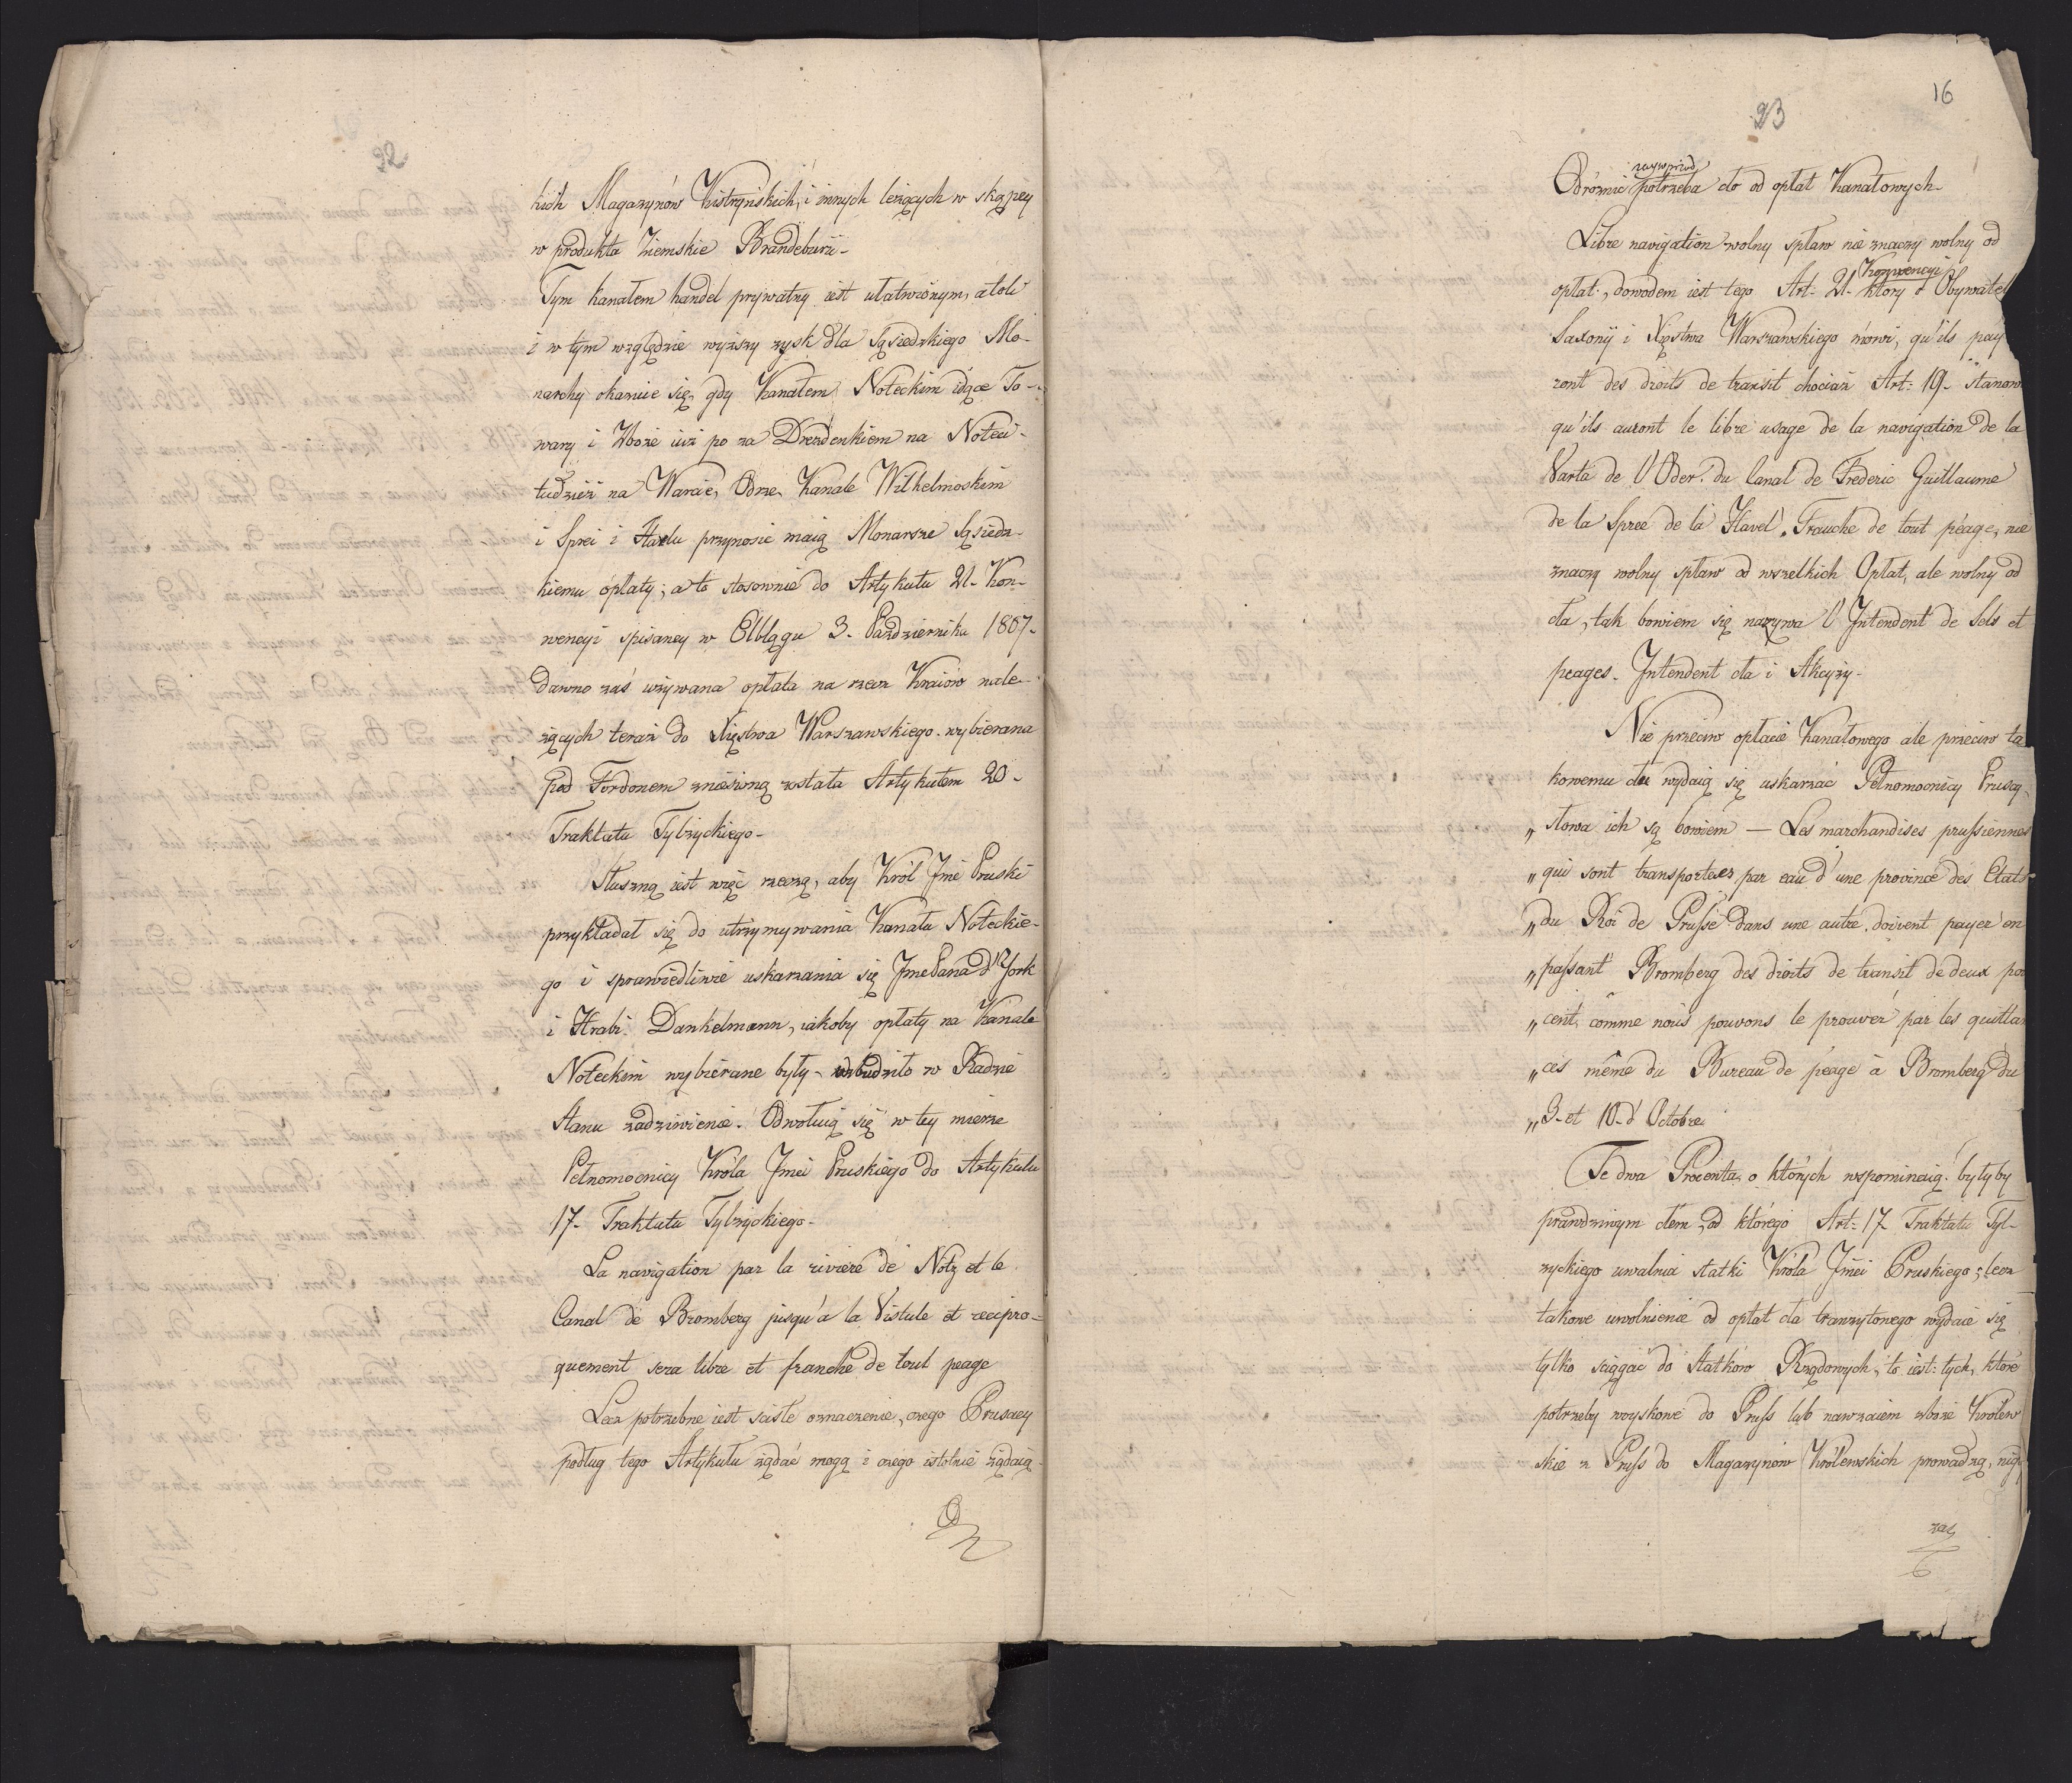 32
kich Magazynów Kistryńskich, i innych leżących w skąpey
w produkta Ziemskie Brandeburii-
Tym kanałem handel prywatny iest ułatwionym, a toli
i w tym względzie wyższy zysk dla Sąsiedzkiego Mo-
narchy okazuie się, gdy Kanałem Noteckim idące To-
wary i Zboże iuż po za Drezdenkiem na Noteci-
tudzież na Warcie, Odrze, Kanale Wilhelmoskim
i Sprei i Havlu przynosić maią Monarsze Sąsiedz-
kiemu opłaty; a to stosownie do Artykułu 21. Kon-
wencyi spisaney w Elblągu 3. Października 1807-
dawno zaś używana opłata na rzecz Kraiów nale-
żących teraz do Xięstwa Warszawskiego wybierana
pod Fordonem zniesioną została Artykułem 20-
Traktatu Tylżyckiego-
Słuszną iest więc rzeczą, aby Król Jmć Pruski
przykładał się do utrzymywania Kanału Noteckie-
go i sprawiedliwie uskarzania się Jme Pana d'York
i Hrabi Dankelmann, iakoby opłaty na Kanale
Noteckim wybierane były, wzbudziło w Radzie
Stanu zadziwienie. Odwołuią się w tey mierze
Pełnomocnicy Króla Jmci Pruskiego do Artykułu
17- Traktatu Tylżyckiego-
La navigation par la riviere de Notz et le
Canal de Bromberg jusqu'a la Vistule et recipro-
quement sera libre et franche de tout peage
Lecz potrzebne iest ścisłe oznaczenie, czego Prusacy
podług tego Artykułu żądać mogą i czego istotnie żądaią-
16
23
nayprzód
Odróżnić potrzeba cło od opłat Kanałowych-
Libre navigation wolny spław nie znaczy wolny od
Konwencyi
opłat, dowodem iest tego Art. 21. który o Obywatel
Saxonij i Xięstwa Warszawskiego mówi, qu'ils pay
ront des droits de transit chociaż Art: 19- stanow
qu'ils auront le libre usage de la navigation de la
Varta de l'Oder. du Canal de Frederic Guillaume
de la Spree de la Havel. Franche de tout péage, nie
znaczy wolny spław od wszelkich Opłat, ale wolny od
cła, tak bowiem się nazywa l'Intendent de Sels et
peages. Jntendent cła i Akcyzy-
Nie przeciw opłacie Kanałowego ale przeciw ta
kowemu cłu wydaią się uskarzać Pełnomocnicy Pruscy
„ słowa ich są bowiem — Les marchandises prussiennes
„ qui sont transportees par eau d'une province des Etats
„ du Roi de Prusse dans une autre, doivent payer en
„ passant Bromberg des droits de transit de deux po
„ cent, comme nous pouvons le prouver par les quittan
„ ces même du Bureau de péage à Bromberg du
„ 3- et 10- d'Octobre
Te dwa Procenta, o których wspominaią, byłyby
prawdziwym cłem, od którego Art: 17 Traktatu Tyl-
życkiego uwalnia statki Króla Jmci Pruskiego; lecz
takowe uwolnienie od opłat cła tranzytowego wydaie się
tylko sciągać do Statków Rządowych, to iest: tych, które
potrzeby woyskowe do Pruss lub nawzaiem zboże Królew
skie z Pruss do Magazynów Królewskich prowadzą, nig
zaś